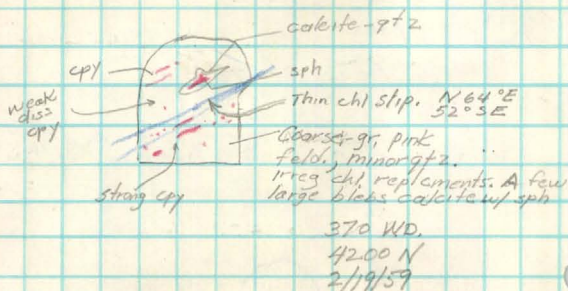 calcite-qtz
cpy
sph
weak
diss
cpy
Thin chl slip. N 64°E
52° SE
Coarse-gr, pink
feld., minor qtz.
irreg chl replaments. A few
large blebs calcite w/ sph
strong cpy
370 WD.
4200 N
2/19/59